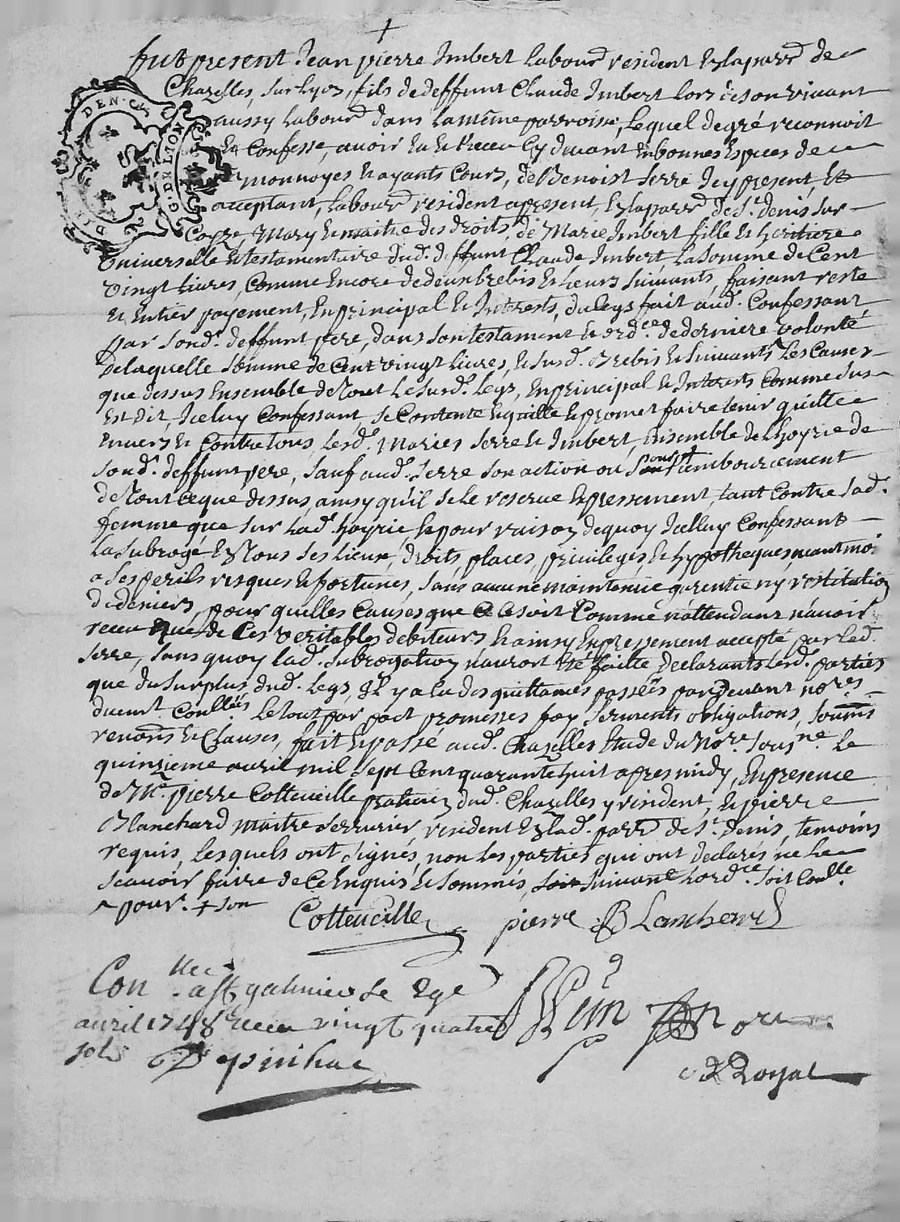 +
fut present Jean pierre Imbert labour.^r resident En la parr.^e de
Chazelles, sur lyon, fils de deffunt Claude Imbert lors de son vivant
DEN. G. DE LYON
aussy labour.^r dans la même parroisse, lequel de gré reconnoit
Et Confesse, avoir Eu et Receu Cy devant En bonnes Espèces de
monnoyes Et ayants Cours, de Benoist Serre Icy present, Et
acceptant, labour.^r resident apresent, En la parr.^e de S.^t denis sur
Coyze, Mary Et maitre des droits, de Marie Imbert fille Et heritiere
Universelle Et testamentaire dud. deffunt Claude Imbert la somme de Cent
Vingt livres, Comme Encore de deux brebis Et leurs suivants, faisant reste
Et Entier payement, En principal Et Interests, du legs fait aud. Confessant
par sond. deffunt pere, dans son testament Et ord.^ce de derniere volonté
De laquelle somme de Cent vingt livres, Et susd. Brebis Et suivants Les Causes
que dessus Ensemble de tout Le susd. Legs, En principal Et Interets Comme sus
Est Dit, Iceluy Confessant se Contente Equitte Et promet faire tenir quitte
Envers Et Contre tous, lesd. Mariés Serre Et Imbert, Ensemble de l'hoyrie de
Sond. deffunt pere, sauf aud. Serre son action ou remboursement
de tout ce que dessus, ainsy qu'il se le reserve Expressement tant Contre sad.
femme que sur lad. hoyrie, Et pour raison de quoy Icelluy Confessant
La subrogé En tous ses lieux, droits, places, privileges Et hypotheques, neantmoi
a ses perils risques Et fortunes, sans aucune maintenue garentie ny restitution
De deniers, pour quelles Causes que Ce soit Comme n'attendant n'avoir
receu que de Ces veritables debiteurs Et ainsy Expressement accepté par led.
Serre, sans quoy lad. subrogation n'auroit Eté faitte Declarants lesd. parties
que du surplus dud. Legs, Il y a Eu des quittances passées par devant no.^res
Le tout par pact promesses foy serments obligations, soumis
renon.^s Et Clauses, fait Et passé aud. Chazelles Etude du No.^re sous.^ne Le
quinzieme avril mil sept Cent quarante huit apres midy, En presence
de M.^e pierre Cotteveille praticien dud. Chazelles y resident, Et pierre
Blanchard maitre serrurier, resident En lad. parr.^e de S.^t denis, temoins
requis, lesquels ont signés, non les parties qui ont declarés ne le
scavoir faire de Ce Enquis Et sommés, suivant l'ord.^ce
pour. + son
Cotteveille pierre Blancherd
Con.^llé a S.^t galmier Le 29e
avril 1748 receu vingt quatre
sols
Royal